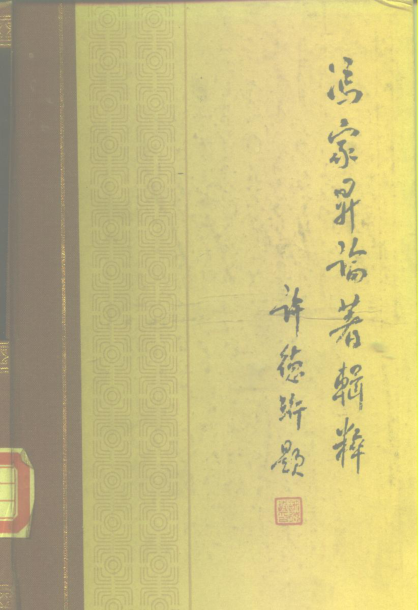 冯家昇论著輯粹
许德珩题